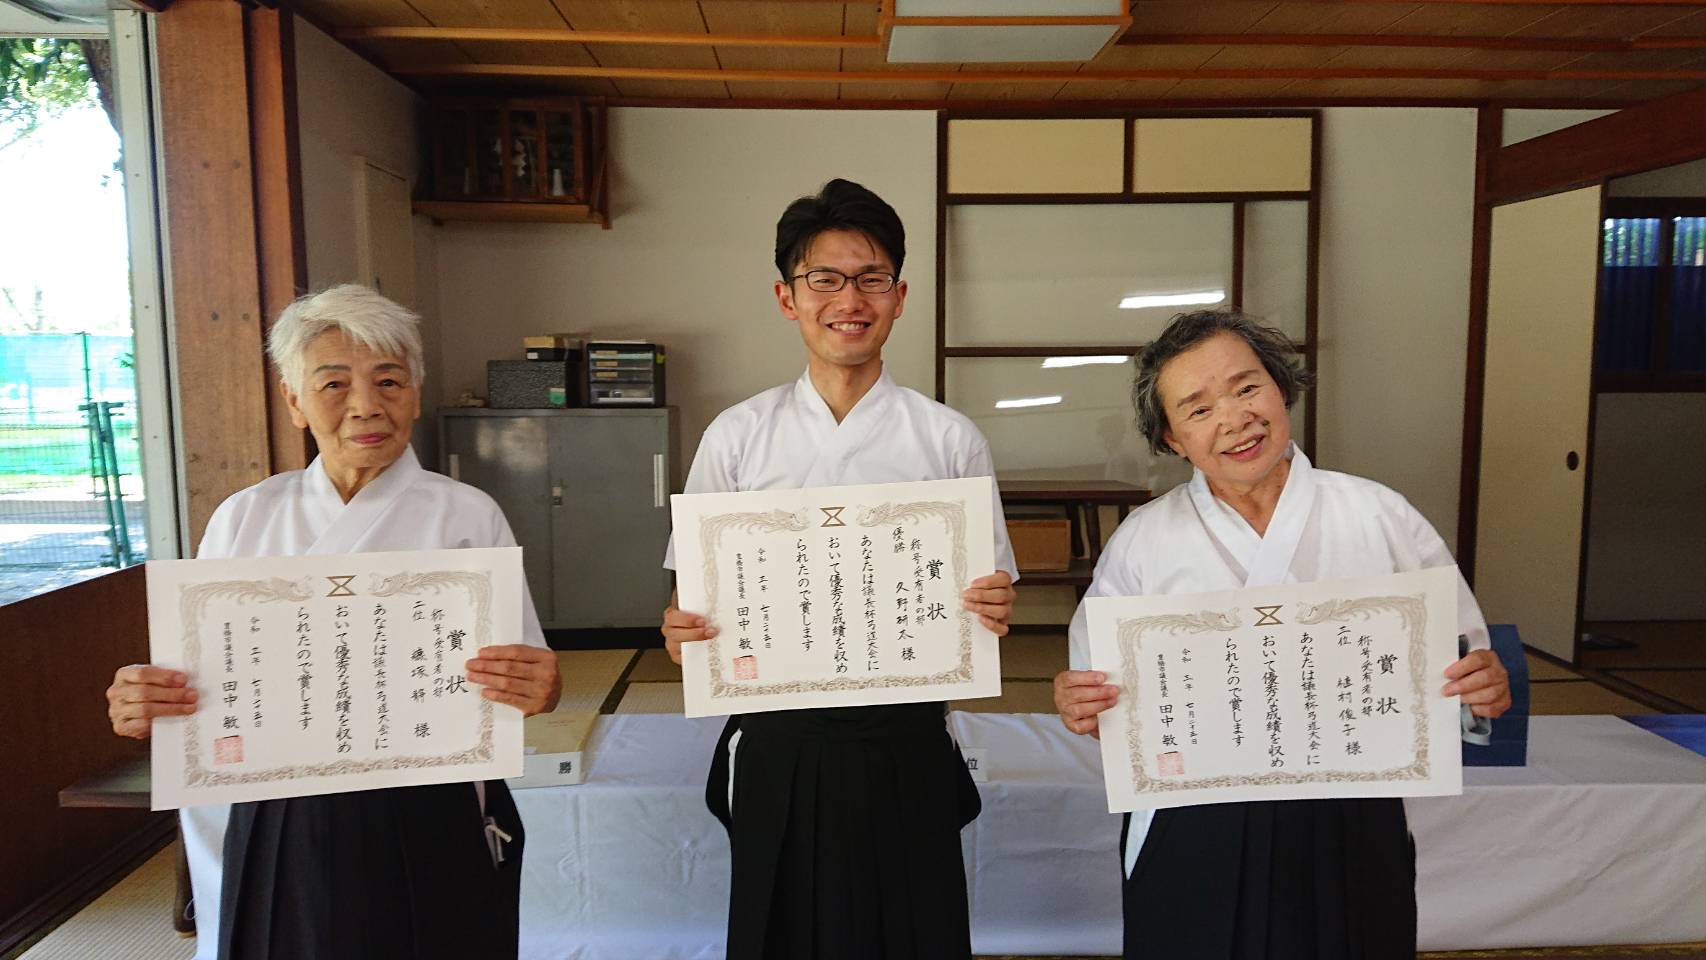 賞状
称号受有者の部
二位
様
あなたは議長杯弓道大会に
おいて優秀な成績を収め
られたので賞します
令和 三年 七月二十五日
豊橋市議会議長 田中敏一
賞状
称号受有者の部
優勝 久野研太 様
あなたは議長杯弓道大会に
おいて優秀な成績を収め
られたので賞します
令和 三年 七月二十五日
豊橋市議会議長 田中敏一
賞状
称号受有者の部
三位 植村俊子 様
あなたは議長杯弓道大会に
おいて優秀な成績を収め
られたので賞します
令和 三年 七月二十五日
豊橋市議会議長 田中敏一
勝
位